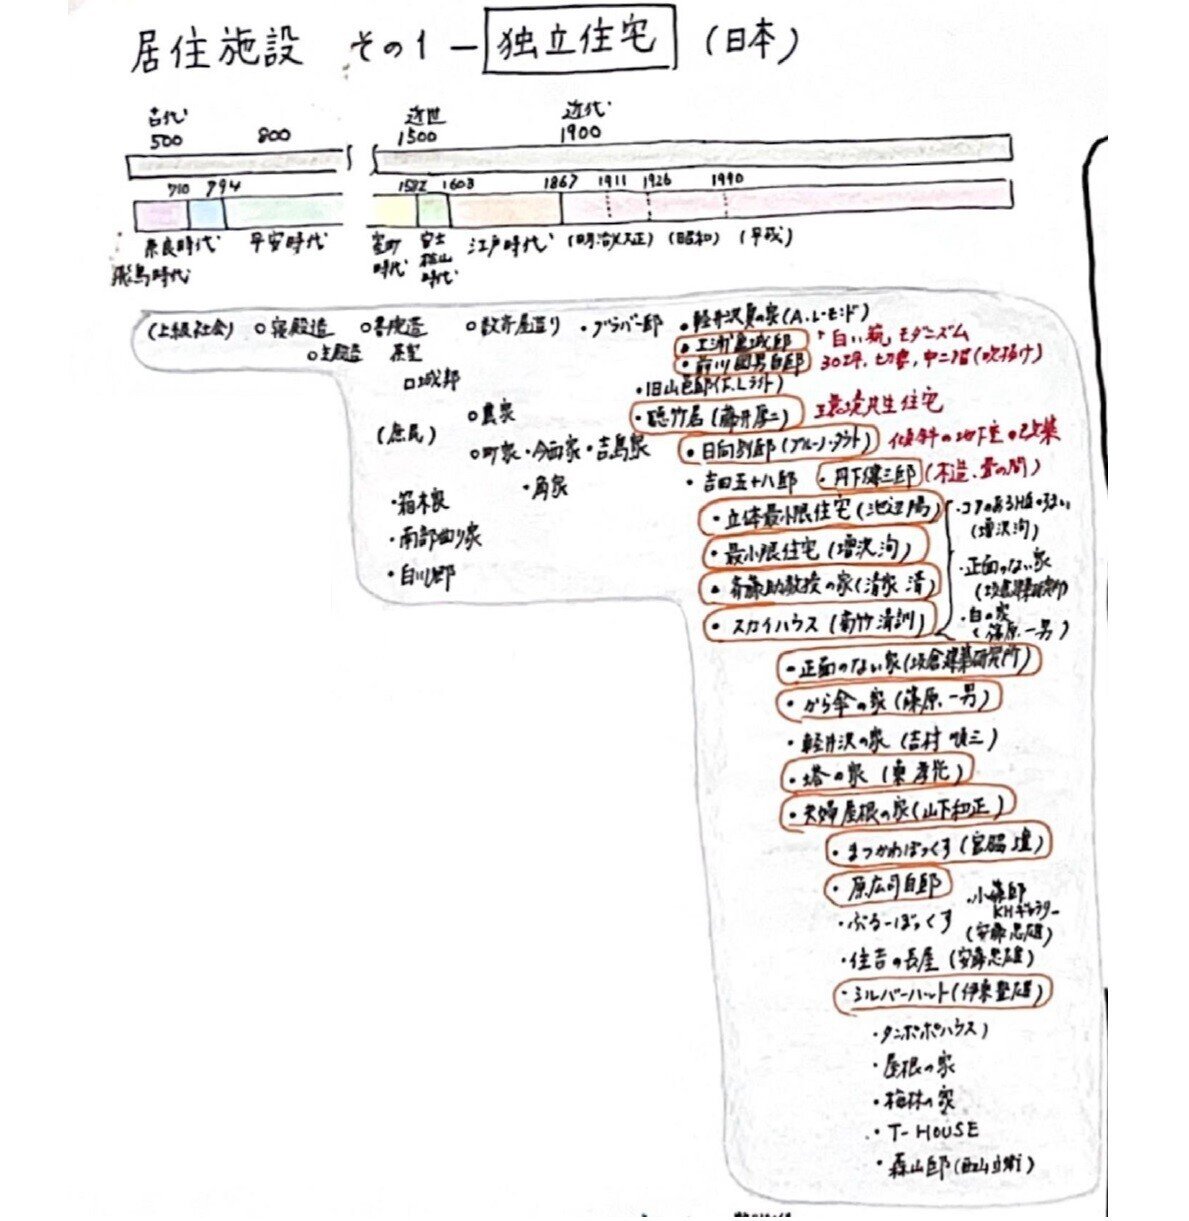 居住施設 その1 ー 独立住宅 (日本)
古代 近世 近代
500 800 1500 1900
710 794 1582 1603 1867 1911 1926 1990
奈良時代 平安時代 室町時代 安土桃山時代 江戸時代 (明治)(大正) (昭和) (平成)
飛鳥時代
(上級社会) ○寝殿造 ○書院造 ○数寄屋造り ・グラバー邸 ・軽井沢夏の家(A.レーモンド)
○主殿造 茶室 ・土浦亀城邸 白い箱 モダニズム
・前川國男自邸 30坪、切妻、中二階(吹抜け)
□城郭 ・旧山邑邸(F.Lライト)
(庶民) ○農家 ・聴竹居(藤井厚二) 環境共生住宅
○町家 ・今西家 ・吉島家 ・日向別邸(ブルーノ・タウト) 傾斜の地下室
・角家 ・吉田五十八邸 ・丹下健三邸 (木造、畳の間)
・箱木家
・南部曲り家
・白川郷
・立体最小限住宅(池辺陽) ・コアのあるH氏のすまい
(増沢洵)
・最小限住宅(増沢洵) ・正面のない家
(坂倉建築研究所)
・斉藤助教授の家(清家 清) ・白の家
(篠原一男)
・スカイハウス(菊竹清訓)
・正面のない家(坂倉建築研究所)
・から傘の家(篠原一男)
・軽井沢の家(吉村順三)
・塔の家(東孝光)
・夫婦屋根の家(山下和正)
・まつかわぼっくす(宮脇 檀)
・原広司自邸 ・小篠邸
KHギャラリー
・ぶるーぼっくす (安藤忠雄)
・住吉の長屋(安藤忠雄)
・シルバーハット(伊東豊雄)
・タンポポハウス)
・屋根の家
・梅林の家
・T-HOUSE
・森山邸(西沢立衛)